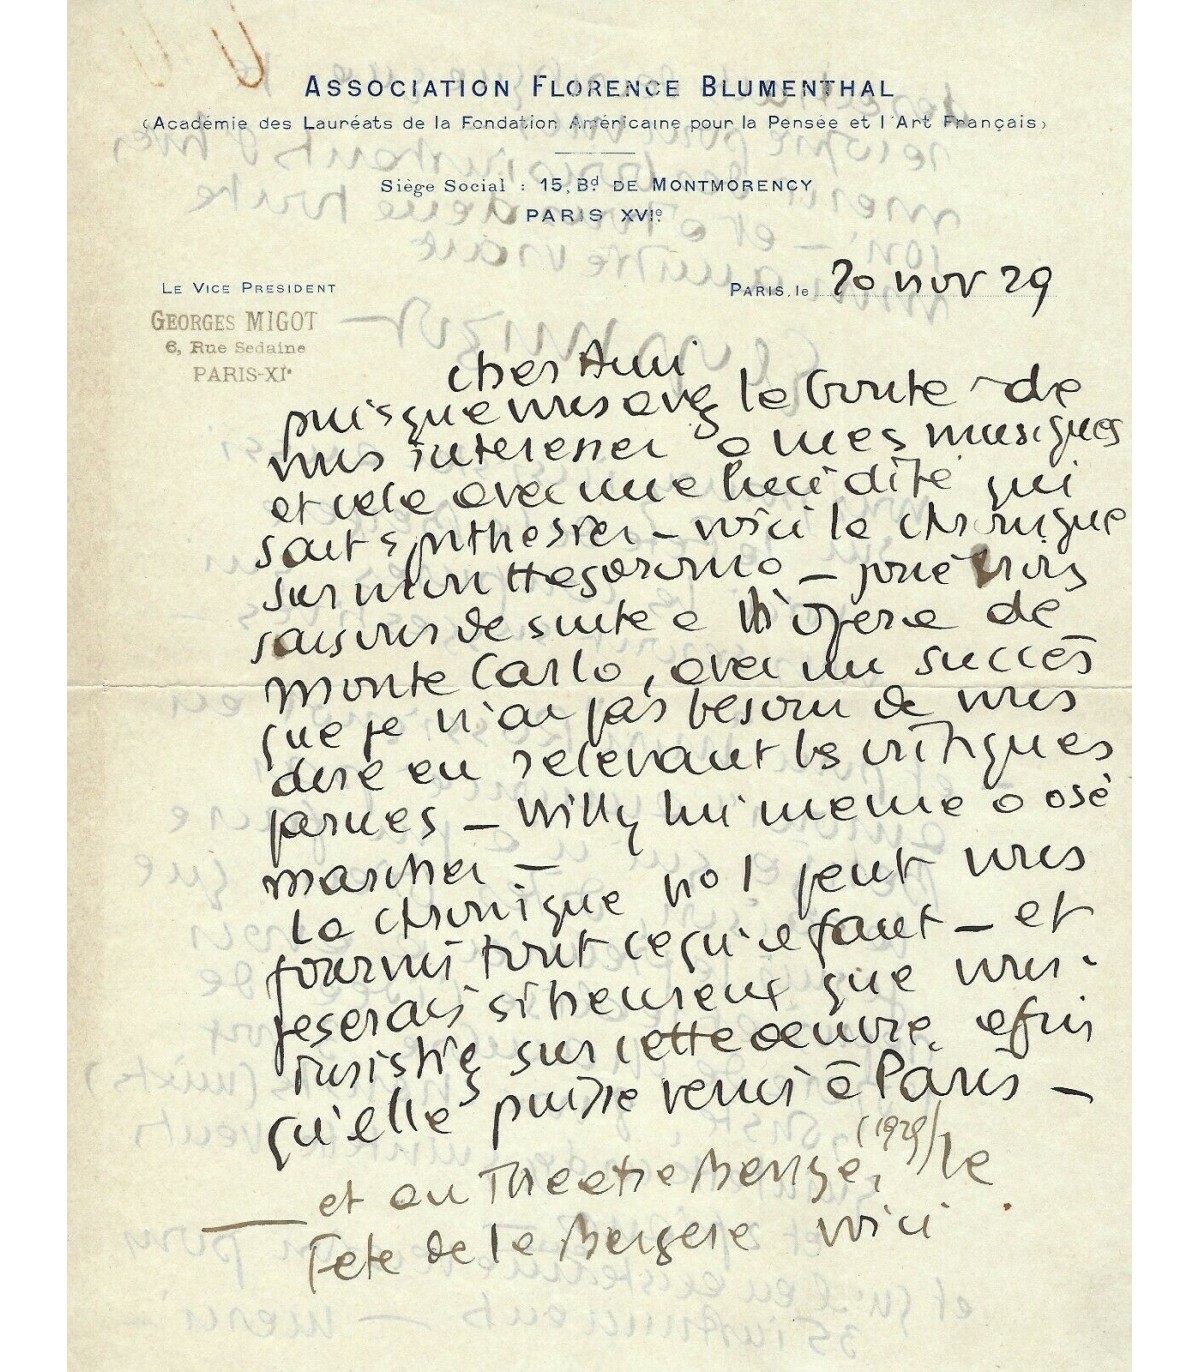 ASSOCIATION FLORENCE BLUMENTHAL
(Académie des Lauréats de la Fondation Américaine pour la Pensée et l'Art Français)
Siège Social : 15, Bd DE MONTMORENCY
PARIS XVIe
LE VICE PRESIDENT
PARIS, le 20 nov 29
GEORGES MIGOT
6, Rue Sedaine
PARIS-XIe
cher Ami
puisque vous avez la bonté de
vous intéresser a mes musiques
et cela avec une lucidité qui
sait synthesier – voici la chronique
sur mon Hagoromo – joué trois
saisons de suite a l'opera de
Monte Carlo, avec un succès
que je n'ai pas besoin de vous
dire en relevant les critiques
parues – Willy lui meme a osé
marcher –
La chronique no 1 peut vous
fournir tout ce qu'il faut – et
je serais si heureux que vous
insistiez sur cette oeuvre afin
qu'elle puisse venir à Paris –
et au Theatre Beriza, (1929) / le
Fete de la Bergere voici